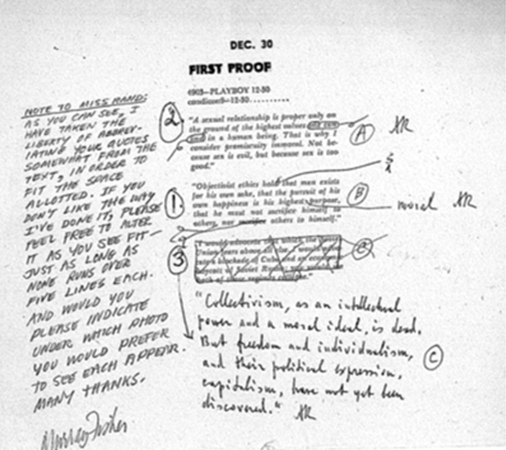 DEC. 30
FIRST PROOF
4903—PLAYBOY 12-30
NOTE TO MISS RAND:
AS YOU CAN SEE, I
HAVE TAKEN THE
LIBERTY OF ABBREV-
IATING YOUR QUOTES
SOMEWHAT FROM THE
TEXT, IN ORDER TO
FIT THE SPACE
ALLOTTED. IF YOU
DON'T LIKE THE WAY
I'VE DONE IT, PLEASE
FEEL FREE TO ALTER
IT AS YOU SEE FIT—
JUST AS LONG AS
NONE RUNS OVER
FIVE LINES EACH.
AND WOULD YOU
PLEASE INDICATE
UNDER WHICH PHOTO
YOU WOULD PREFER
TO SEE EACH APPEAR.
MANY THANKS.
Murray Fisher
2
"A sexual relationship is proper only on
the ground of the highest values
in a human being. That is why I
consider promiscuity immoral. Not be-
cause sex is evil, but because sex is too
good."
A
AR
1
"Objectivist ethics hold that man exists
for his own sake, that the pursuit of his
own happiness is his highest purpose,
that he must not sacrifice himself to
others, nor sacrifice others to himself."
B
moral AR
3
"Collectivism, as an intellectual
power and a moral ideal, is dead.
But freedom and individualism,
and their political expression,
capitalism, have not yet been
discovered." AR
C